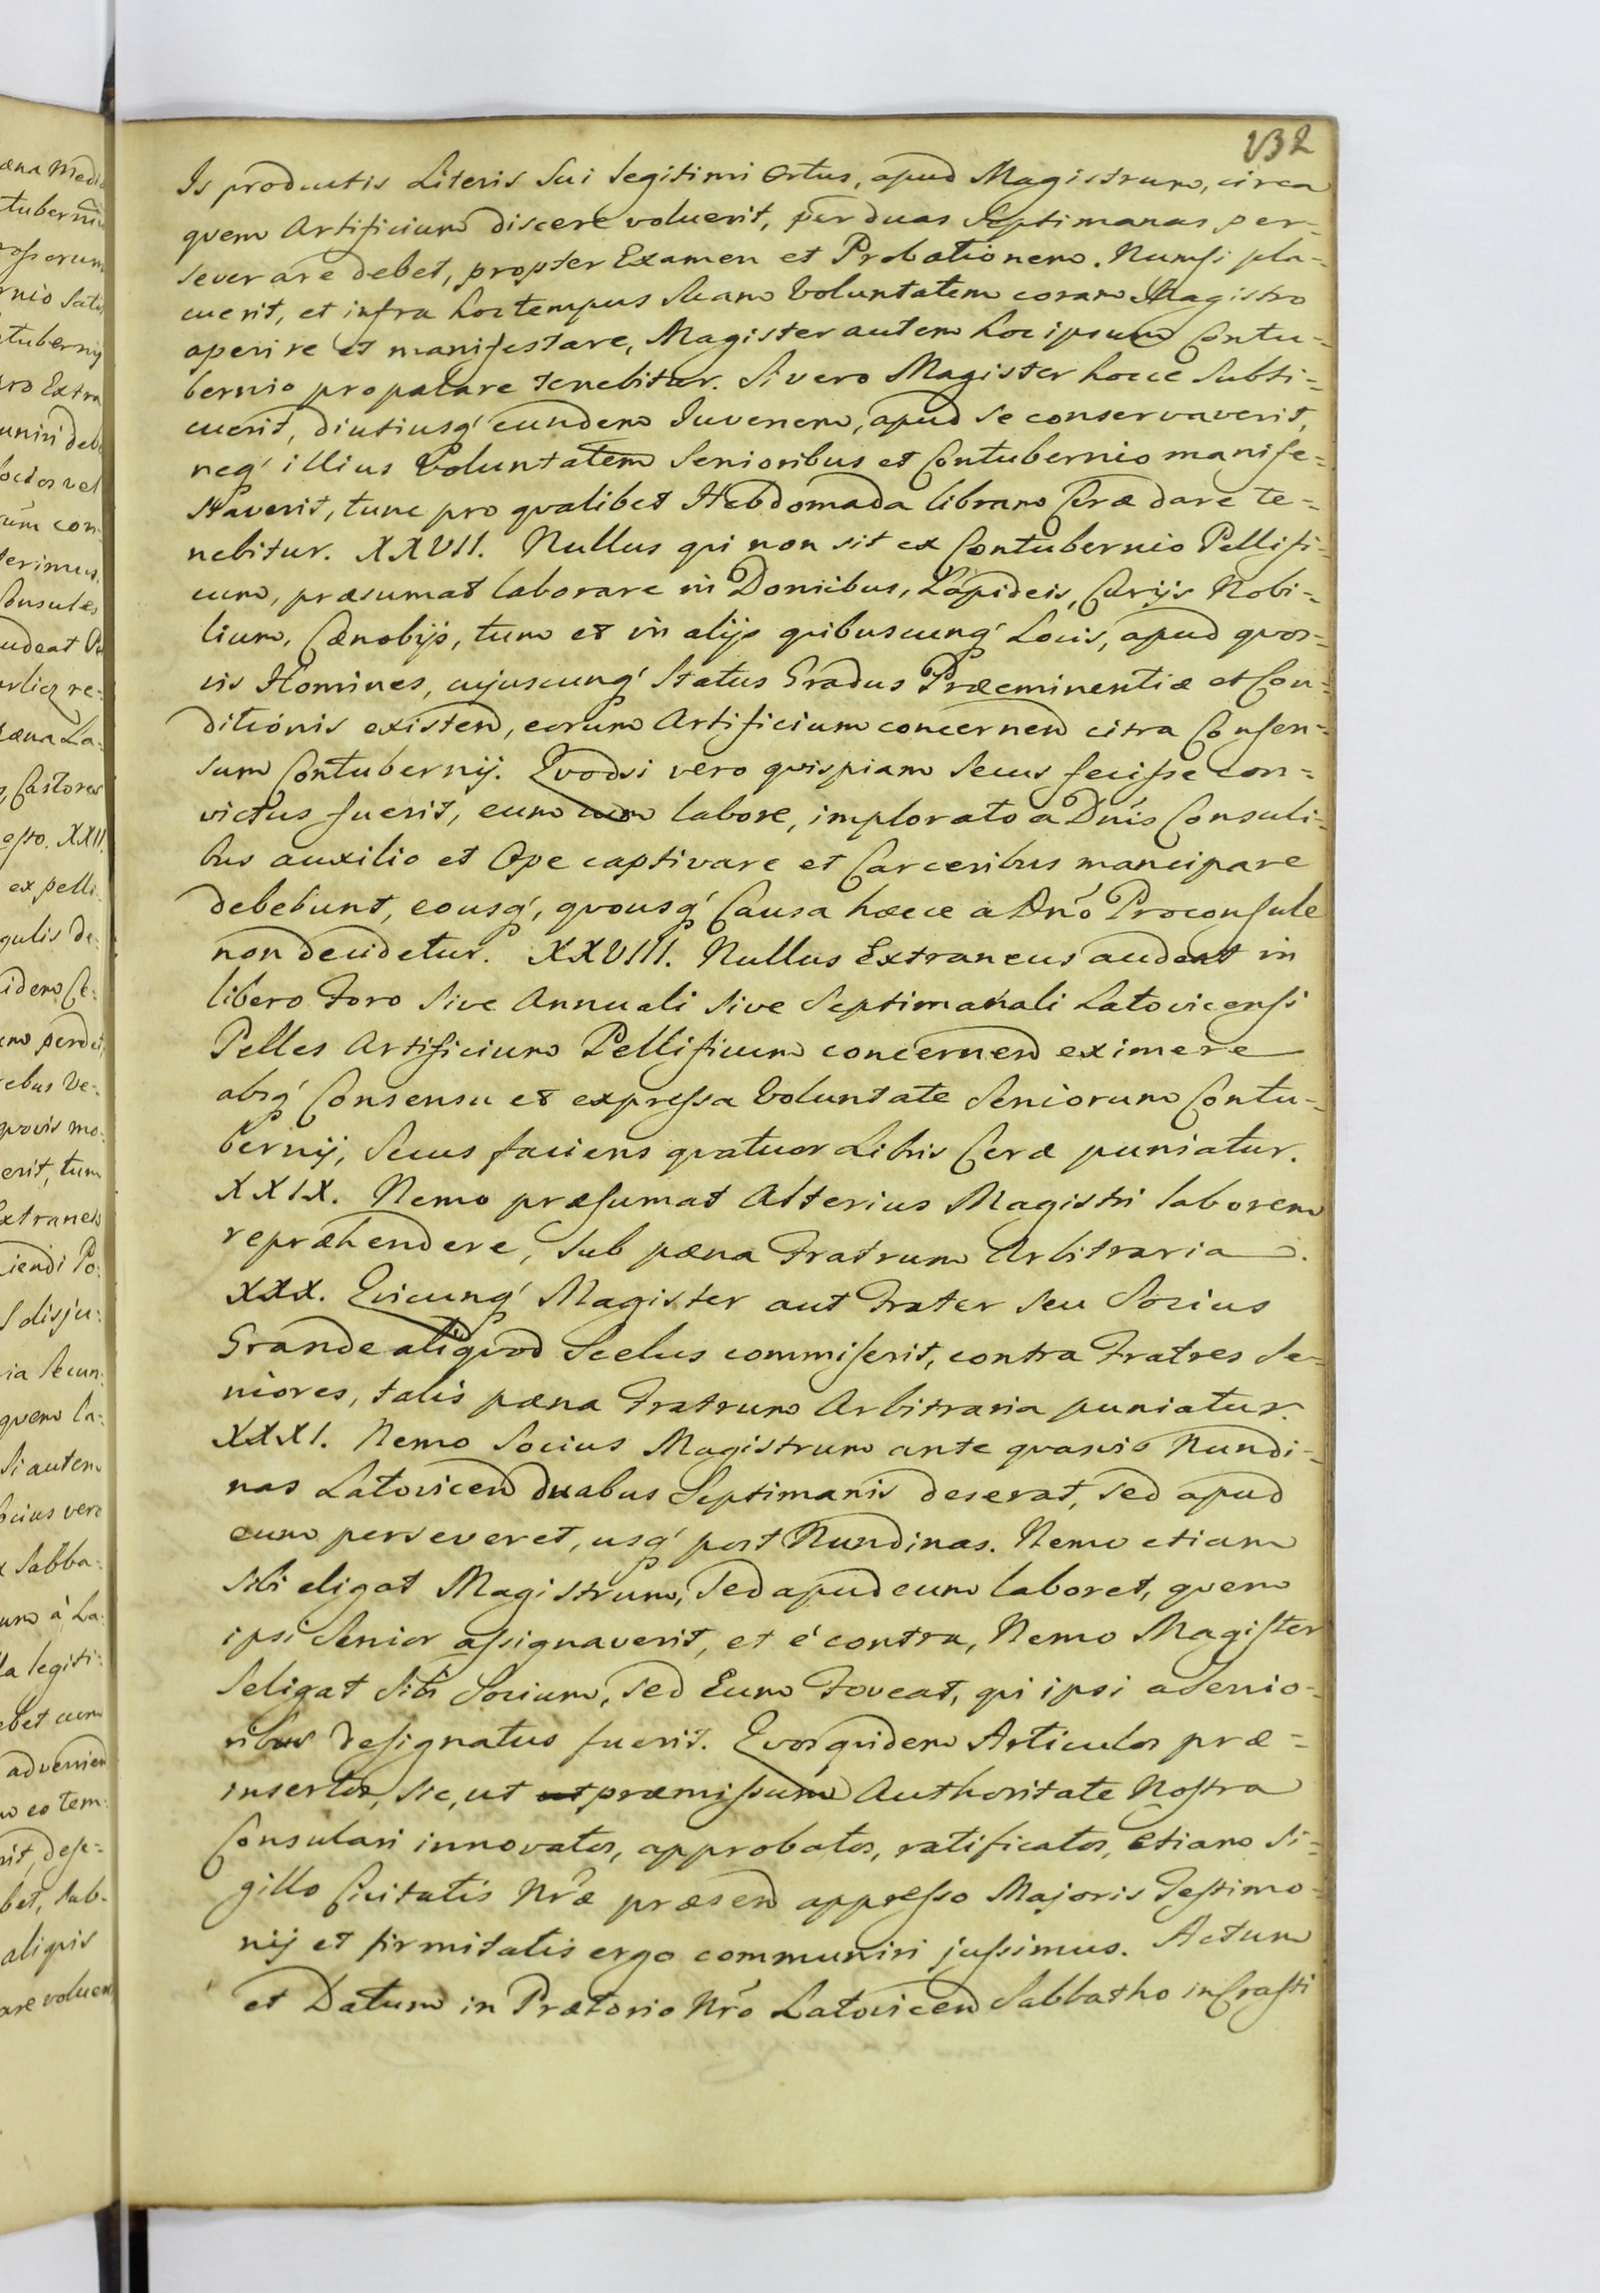 132
Is productis Literis Sui legitimi Ortus, apud Magistrum, circa
quem Artificium discere voluerit, per duas Septimanas per=
severare debet, propter Examen et Probationem. Numsi pla=
cuerit, et infra hoc tempus Suam Voluntatem coram Magistro
aperire et manifestare, Magister autem hoc ipsum Contu=
bernio propalare tenebitur. Si vero Magister hocce Subti=
cuerit, diutiusq́ eundem Iuvenem, apud se conservaverit,
neq́ illius Voluntatem Senioribus et Contubernio manife=
staverit, tunc pro qualibet Hebdomada libram Ceræ dare te=
nebitur. XXVII. Nullus qui non sit ex Contubernio Pellifi=
cum, præsumat laborare in Domibus, Lapideis, Curijs Nobi=
lium, Cænobijs, tum et in alijs quibuscunq́ Locis, apud quos=
vis Homines, cujuscunq́ Status Gradus Præeminentiæ et Con=
ditionis existen, eorum Artificium concernen citra Consen=
sum Contubernij. Quodsi vero quispiam secus fecisse con=
victus fuerit, eum cum labore, implorato a Dńis Consuli=
bus auxilio et Ope captivare et Carceribus mancipare
debebunt, eousq́, quousq́ Causa hæcce a Dńo Proconsule
non decidetur. XXVIII. Nullus Extraneus audeat in
libero Foro Sive Annuali Sive Septimanali Latovicensi
Pelles Artificium Pellificum concernen eximere
absq́ Consensu et expressa Voluntate Seniorum Contu=
bernij, Secus faciens quatuor Libris Ceræ puniatur.
XXIX. Nemo præsumat Alterius Magistri laborem
repræhendere, Sub pæna Fratrum Arbitraria.
XXX. Quicunq́ Magister aut Frater seu Socius
Grande aliquod Scelus commiserit, contra Fratres Se=
niores, talis pæna Fratrum Arbitraria puniatur.
XXXI. Nemo Socius Magistrum ante quasvis Nundi=
nas Latovicen duabus Septimanis deserat, sed apud
eum perseveret, usq́ post Nundinas. Nemo etiam
sibi eligat Magistrum, sed apud eum laboret, quem
ipsi Senior assignaverit, et é contra, Nemo Magister
Seligat Sibi Socium, sed Eum Foveat, qui ipsi a Senio=
ribus designatus fuerit. Quos quidem Articulos præ=
insertos, sic, ut præmissum Authoritate Nostra
Consulari innovatos, approbatos, ratificatos, etiam Si=
gillo Civitatis Nŕæ præsen appresso Majoris Testimo=
nij et firmitatis ergo communiri jussimus. Actum
et Datum in Prætorio Nŕo Latovicen Sabbatho in Crasti